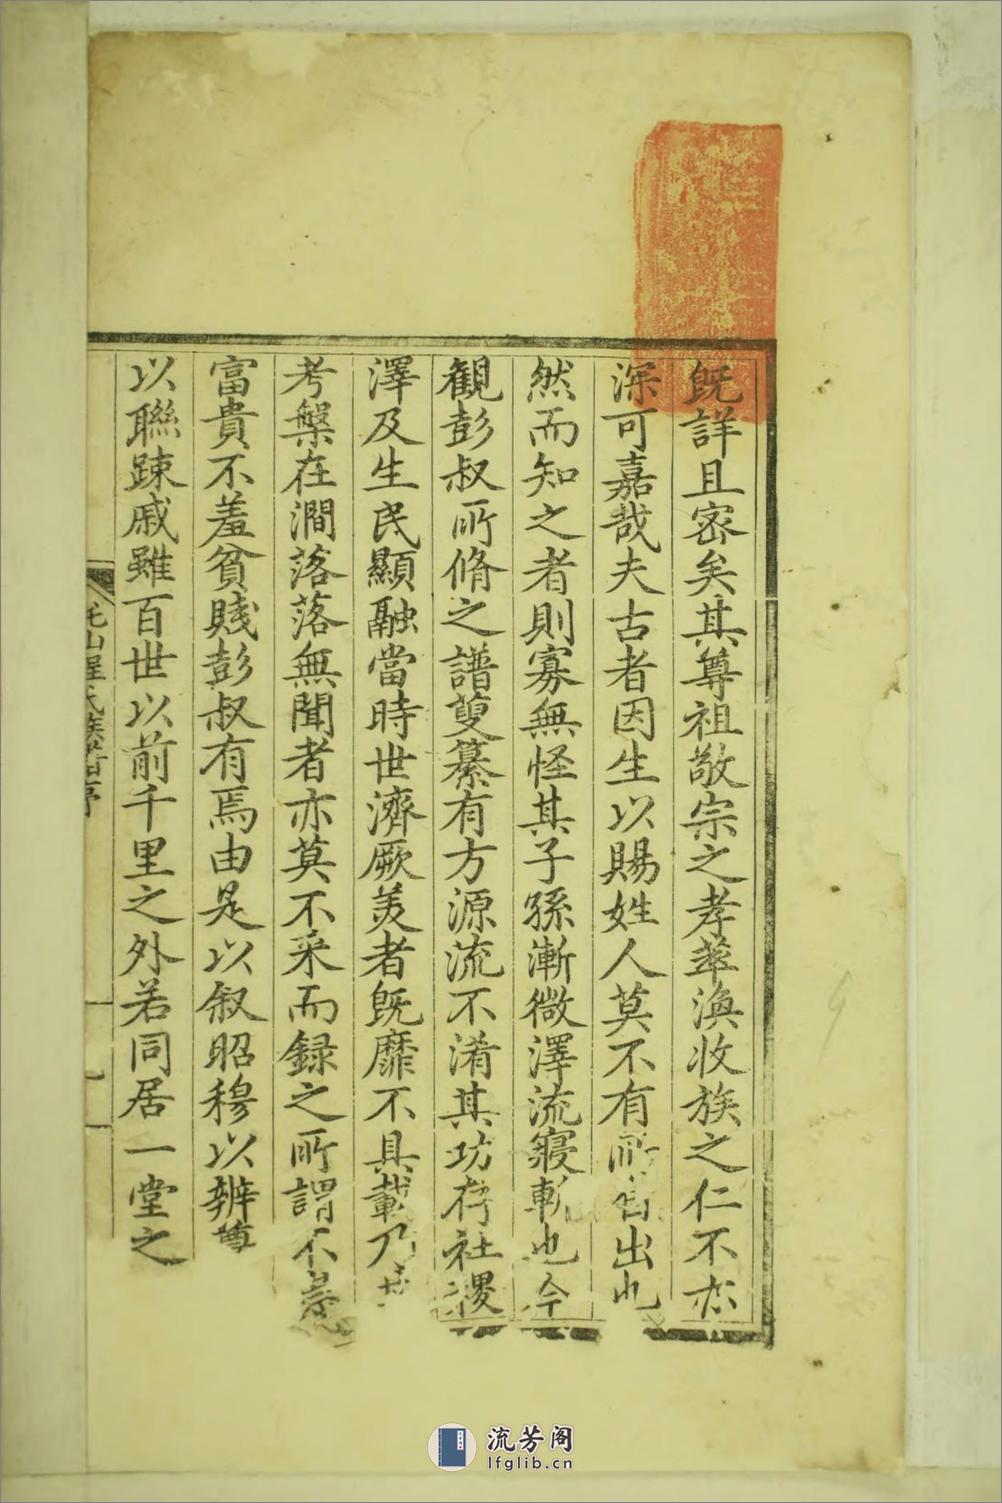 既詳且宻矣其尊祖敬宗之孝萃渙收族之仁不亦
深可嘉哉夫古者因生以賜姓人莫不有所自出也
然而知之者則寡無怪其子孫漸微澤流寢斬也今
観彭叔所脩之譜蒐纂有方源流不淆其功存社稷
澤及生民顯融當時世濟厥美者既靡不具載乃
考槃在澗落落無聞者亦莫不采而録之所謂不羨
富貴不羞貧賤彭叔有焉由是以叙昭穆以辨尊
以聯踈戚雖百世以前千里之外若同居一堂之
山程氏族譜序
流芳阁
lfglib.cn